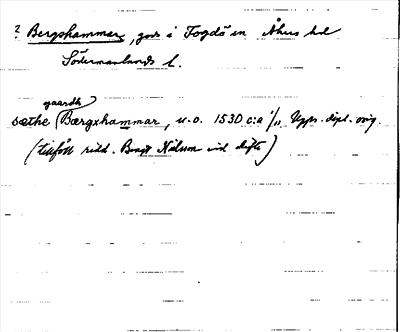 ? Bergshammar, gods i Fogdö sn Åkers hd
Södermanlands l.
gaardh
sæthe Bærgxhammar, u.o. 1530 c:a 1/11 Upps. dipl. orig.
(tillföll ridd. Bengt Nilsson vid skifte)